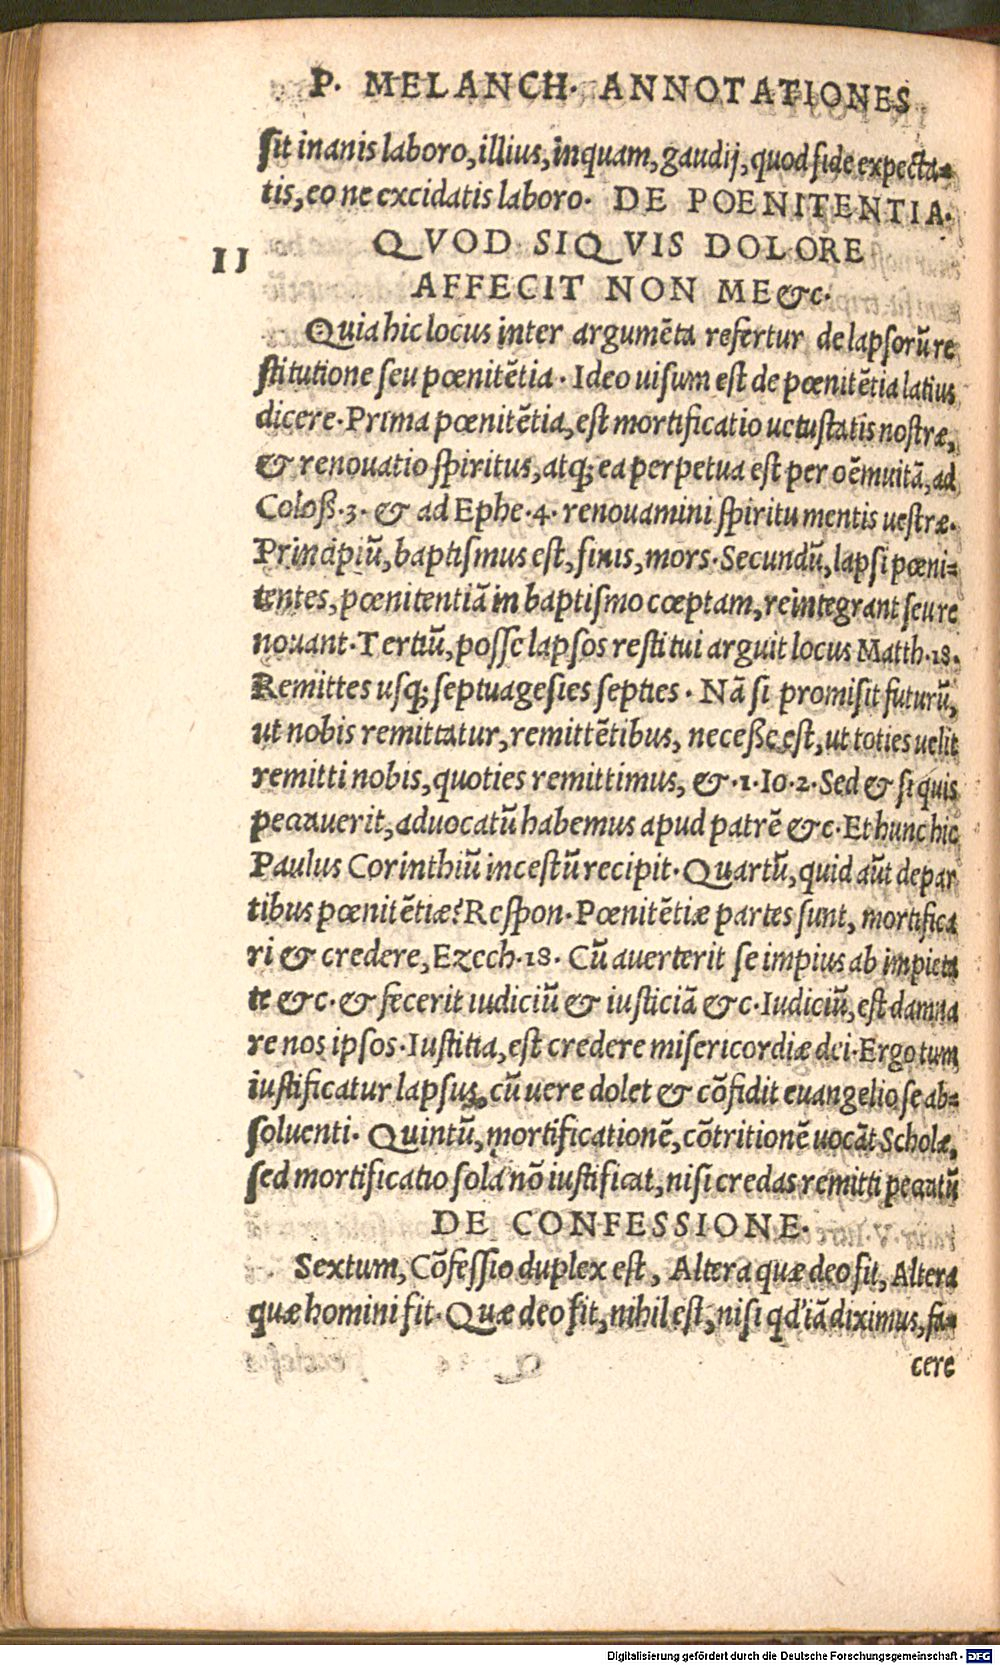 P. MELANCH. ANNOTATIONES
sit inanis laboro, illius, inquam, gaudij, quod fide expecta=
tis, eo ne excidatis laboro. DE POENITENTIA.
II
QVOD SIQVIS DOLORE
AFFECIT NON ME &c.
Quia hic locus inter argumẽta refertur de lapsorũ re
stitutione seu pœnitẽtia. Ideo uisum est de pœnitẽtia latius
dicere. Prima pœnitẽtia, est mortificatio uetustatis nostræ,
& renouatio spiritus, atq; ea perpetua est per oẽm uitã, ad
Coloß. 3. & ad Ephe. 4. renouamini spiritu mentis uestræ.
Principiũ, baptismus est, finis, mors. Secundũ, lapsi pœni=
tentes, pœnitentiã in baptismo cœptam, reintegrant seu re
nouant. Tertiũ, posse lapsos restitui arguit locus Matth. 18.
Remittes usq; septuagesies septies. Nã si promisit futurũ,
ut nobis remittatur, remittẽtibus, neceße est, ut toties uelit
remitti nobis, quoties remittimus, & .1. Io. 2. Sed & si quis
peccauerit, aduocatũ habemus apud patrẽ &c. Et hunc hic
Paulus Corinthiũ incestũ recipit. Quartũ, quid aũt de par
tibus pœnitẽtiæ? Respon. Pœnitẽtiæ partes sunt, mortifica
ri & credere, Ezech. 18. Cũ auerterit se impius ab impieta
te &c. & fecerit iudiciũ & iusticiã &c. Iudiciũ, est damna
re nos ipsos. Iustitia, est credere misericordiæ dei. Ergo tum
iustificatur lapsus, cũ uere dolet & cõfidit euangelio se ab=
soluenti. Quintũ, mortificationẽ, cõtritionẽ uocãt Scholæ,
sed mortificatio sola nõ iustificat, nisi credas remitti peccatũ
DE CONFESSIONE.
Sextum, Cõfessio duplex est, Altera quæ deo fit, Altera
quæ homini fit. Quæ deo fit, nihil est, nisi qd' iã diximus, fa=
cere
Digitalisierung gefördert durch die Deutsche Forschungsgemeinschaft - DFG